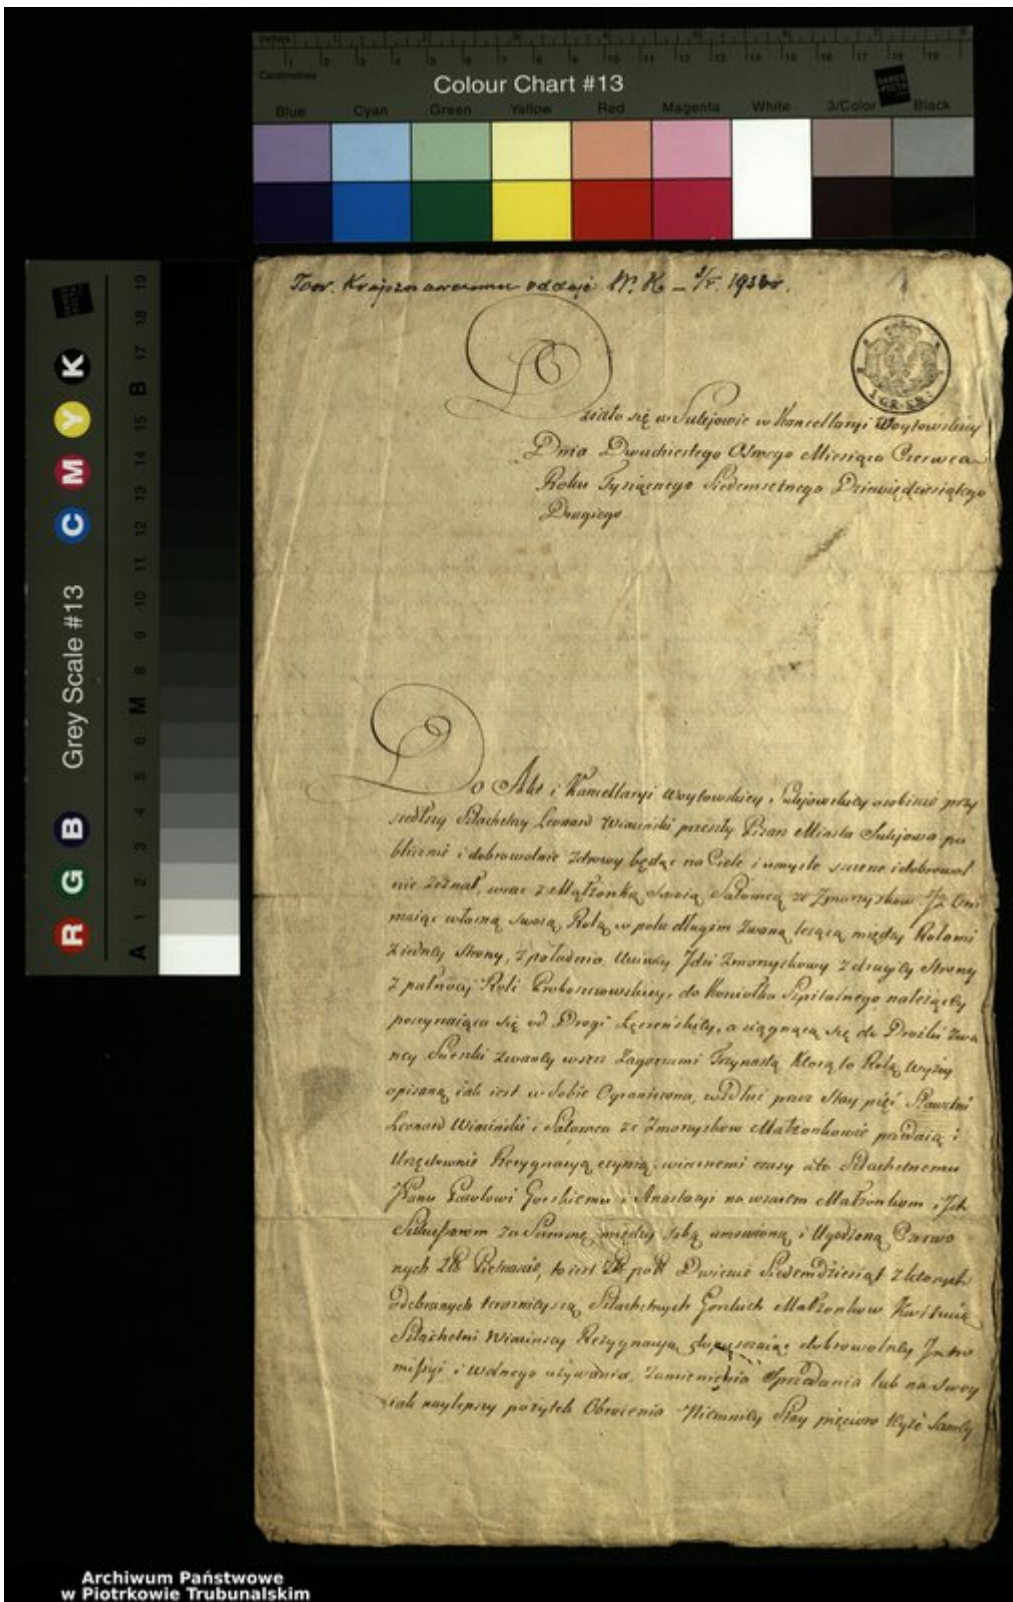 Inches 1 2 3 4 5 6 7 8
Centimetres 1 2 3 4 5 6 7 8 9 10 11 12 13 14 15 16 17 18 19
Colour Chart #13
Blue Cyan Green Yellow Red Magenta White 3/Color Black
Grey Scale #13
R G B C M Y K
A 1 2 3 4 5 6 M 8 9 10 11 12 13 14 15 B 17 18 19
Tow. Krajoznawczemu oddaje W. K –
1 GR. SR.
Działo się w Sulejowie w Kancellaryi Woytowskiey
Dnia Dwudziestego Osmego Miesiąca Czerwca
Roku Tysiącnego Siedemsetnego Dziewięćdziesiątego
Drugiego
Do Akt i Kancellaryi Woytowskiey Sulejowskiey osobiście przy
szedłszy Szlachetny Leonard Wiciński przeszły Pisarz Miasta Sulejowa pu
blicznie i dobrowolnie zdrowy będąc na Ciele i umyśle szczerze i dobrowol
nie zeznał, wraz z Małżonką swoią Salomeą ze Zmoryskow. Jż Oni
maiąc własną swoią Rolą w polu długim zwaną leżącą między Rolami
z iedney strony, z południa Zmoryskowy z drugiey strony
z pułnocy Roli Proboszczowskiey, do Kościołka Szpitalnego należącey
poczynaiąca się od Drogi Łęczeńskiey, a ciągnącą się do Drożki zwa
ney zwaney wszerz Zagonami Trzynastą Ktorą to Rolą wyżey
opisaną iak iest w sobie Ograniczona, wzdłuż przez Stay pięć Sławetni
Leonard Wiciński i Salomea ze Zmoryskow Małżonkowie przedaią i
Urzędownie Rezygnacyą czynią wiecznemi czasy a to Szlachetnemu
Panu Pawłowi Gorskiemu i Anastazyi na wzaiem Małżonkom i Jch
Sukcessorom za Summę między sobą umowioną i Ugodzoną Czerwo
nych Zł Pietnaście, to iest Zł pol Dwieście Siedemdziesiąt z ktorych
odebranych Szlachetnych Gorskich Małżonkow Kwituią
Szlachetni Wicińscy Rezygnacyą dopuszczaiąc dobrowolney Jntro
missyi i wolnego używania, zamienienia Sprzedania lub na swoy
iak naylepszy pożytek Obrocenia Niemniey Stay pięcioro tyże samey
Archiwum Państwowe
w Piotrkowie Trubunalskim